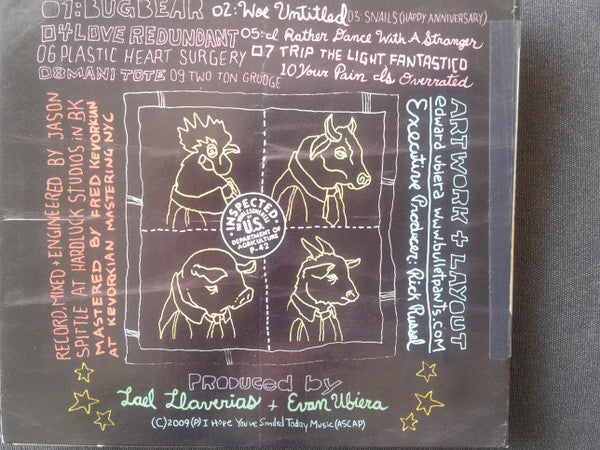 01:BUGBEAR 02: Woe Untitled 03: SNAILS (HAPPY ANNIVERSARY)
04 LOVE REDUNDANT 05: I Rather Dance With A Stranger
06 PLASTIC HEART SURGERY 07 TRIP THE LIGHT FANTASTICO
08 MANI TOTE 09 TWO TON GRUDGE 10 Your Pain Is Overrated
RECORD, MIXED + ENGINEERED BY JASON
SPITTLE AT HARDLUCK STUDIOS IN BK
MASTERED BY FRED KEVORKIAN
AT KEVORKIAN MASTERING NYC
INSPECTED
U.S.
DEPARTMENT OF
AGRICULTURE
P-42
ARTWORK + LAYOUT
edward ubiera www.bulletpants.com
Executive Producer: Rick Russel
PRODUCED by
Lael Llaverias + Evan Ubiera
(C)2009(P) I Hope You've Smiled Today Music (ASCAP)